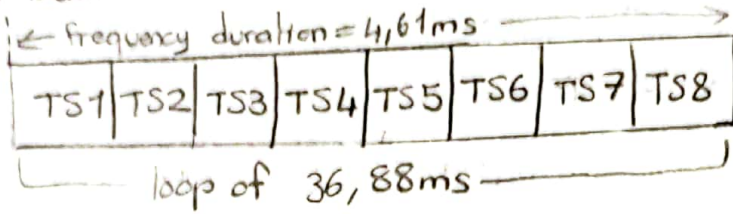 frequency duration = 4,61ms
TS1 TS2 TS3 TS4 TS5 TS6 TS7 TS8
loop of 36,88ms